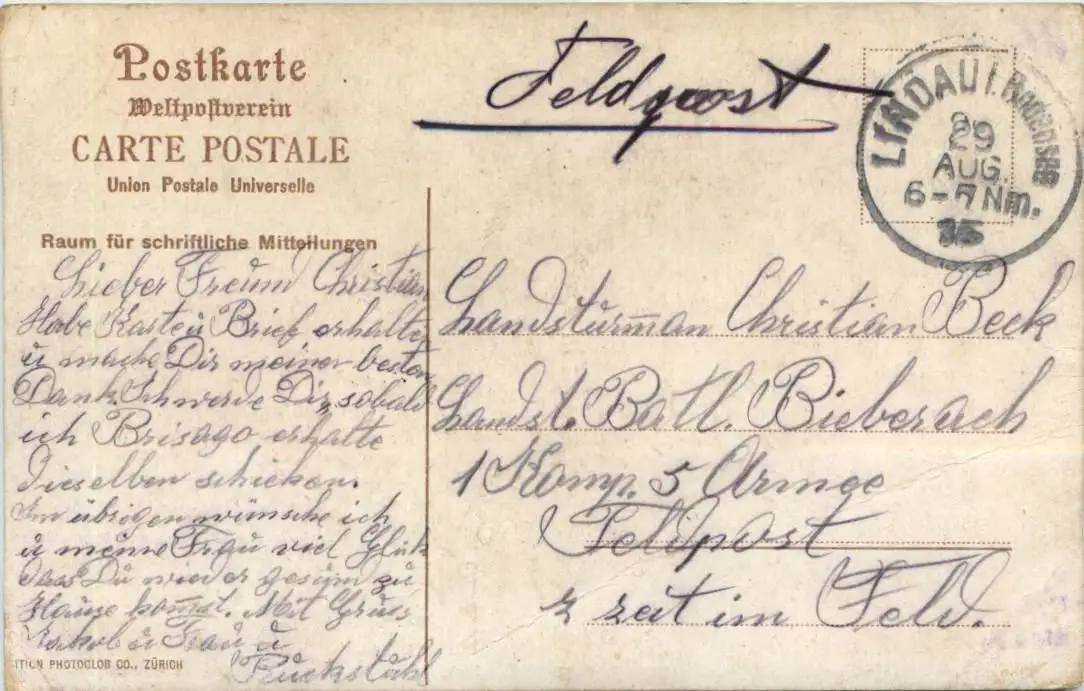 Postkarte
Weltpostverein
CARTE POSTALE
Union Postale Universelle
Raum für schriftliche Mitteilungen
Feldpost
LINDAU i. Bodensee
29
AUG.
6-7 Nm.
15
Lieber Freund Christian
Habe Karte u Brief erhalten
u mache Dir meinen besten
Dank. Ich werde Dir, sobald
ich Brisago erhalte
dieselben schicken.
Im übrigen wünsche ich
u meine Frau viel Glük
dass Du wieder gesund zu
Hause kom̅st. Mit Gruss
Jakob u Frau u
Ruckstühl
Landsturm̅an Christian Beck
Landst. Batl. Bieberach
1 Komp. 5 Armee
Feldpost
z zeit im Feld.
PHOTOGLOB CO., ZÜRICH